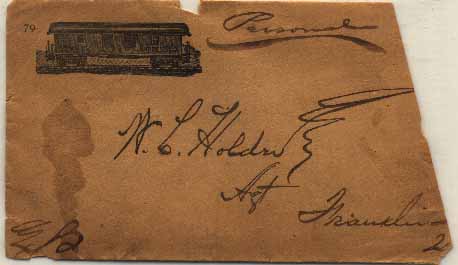 79
Personal
W. C. Holdr
Agt
Franklin
2